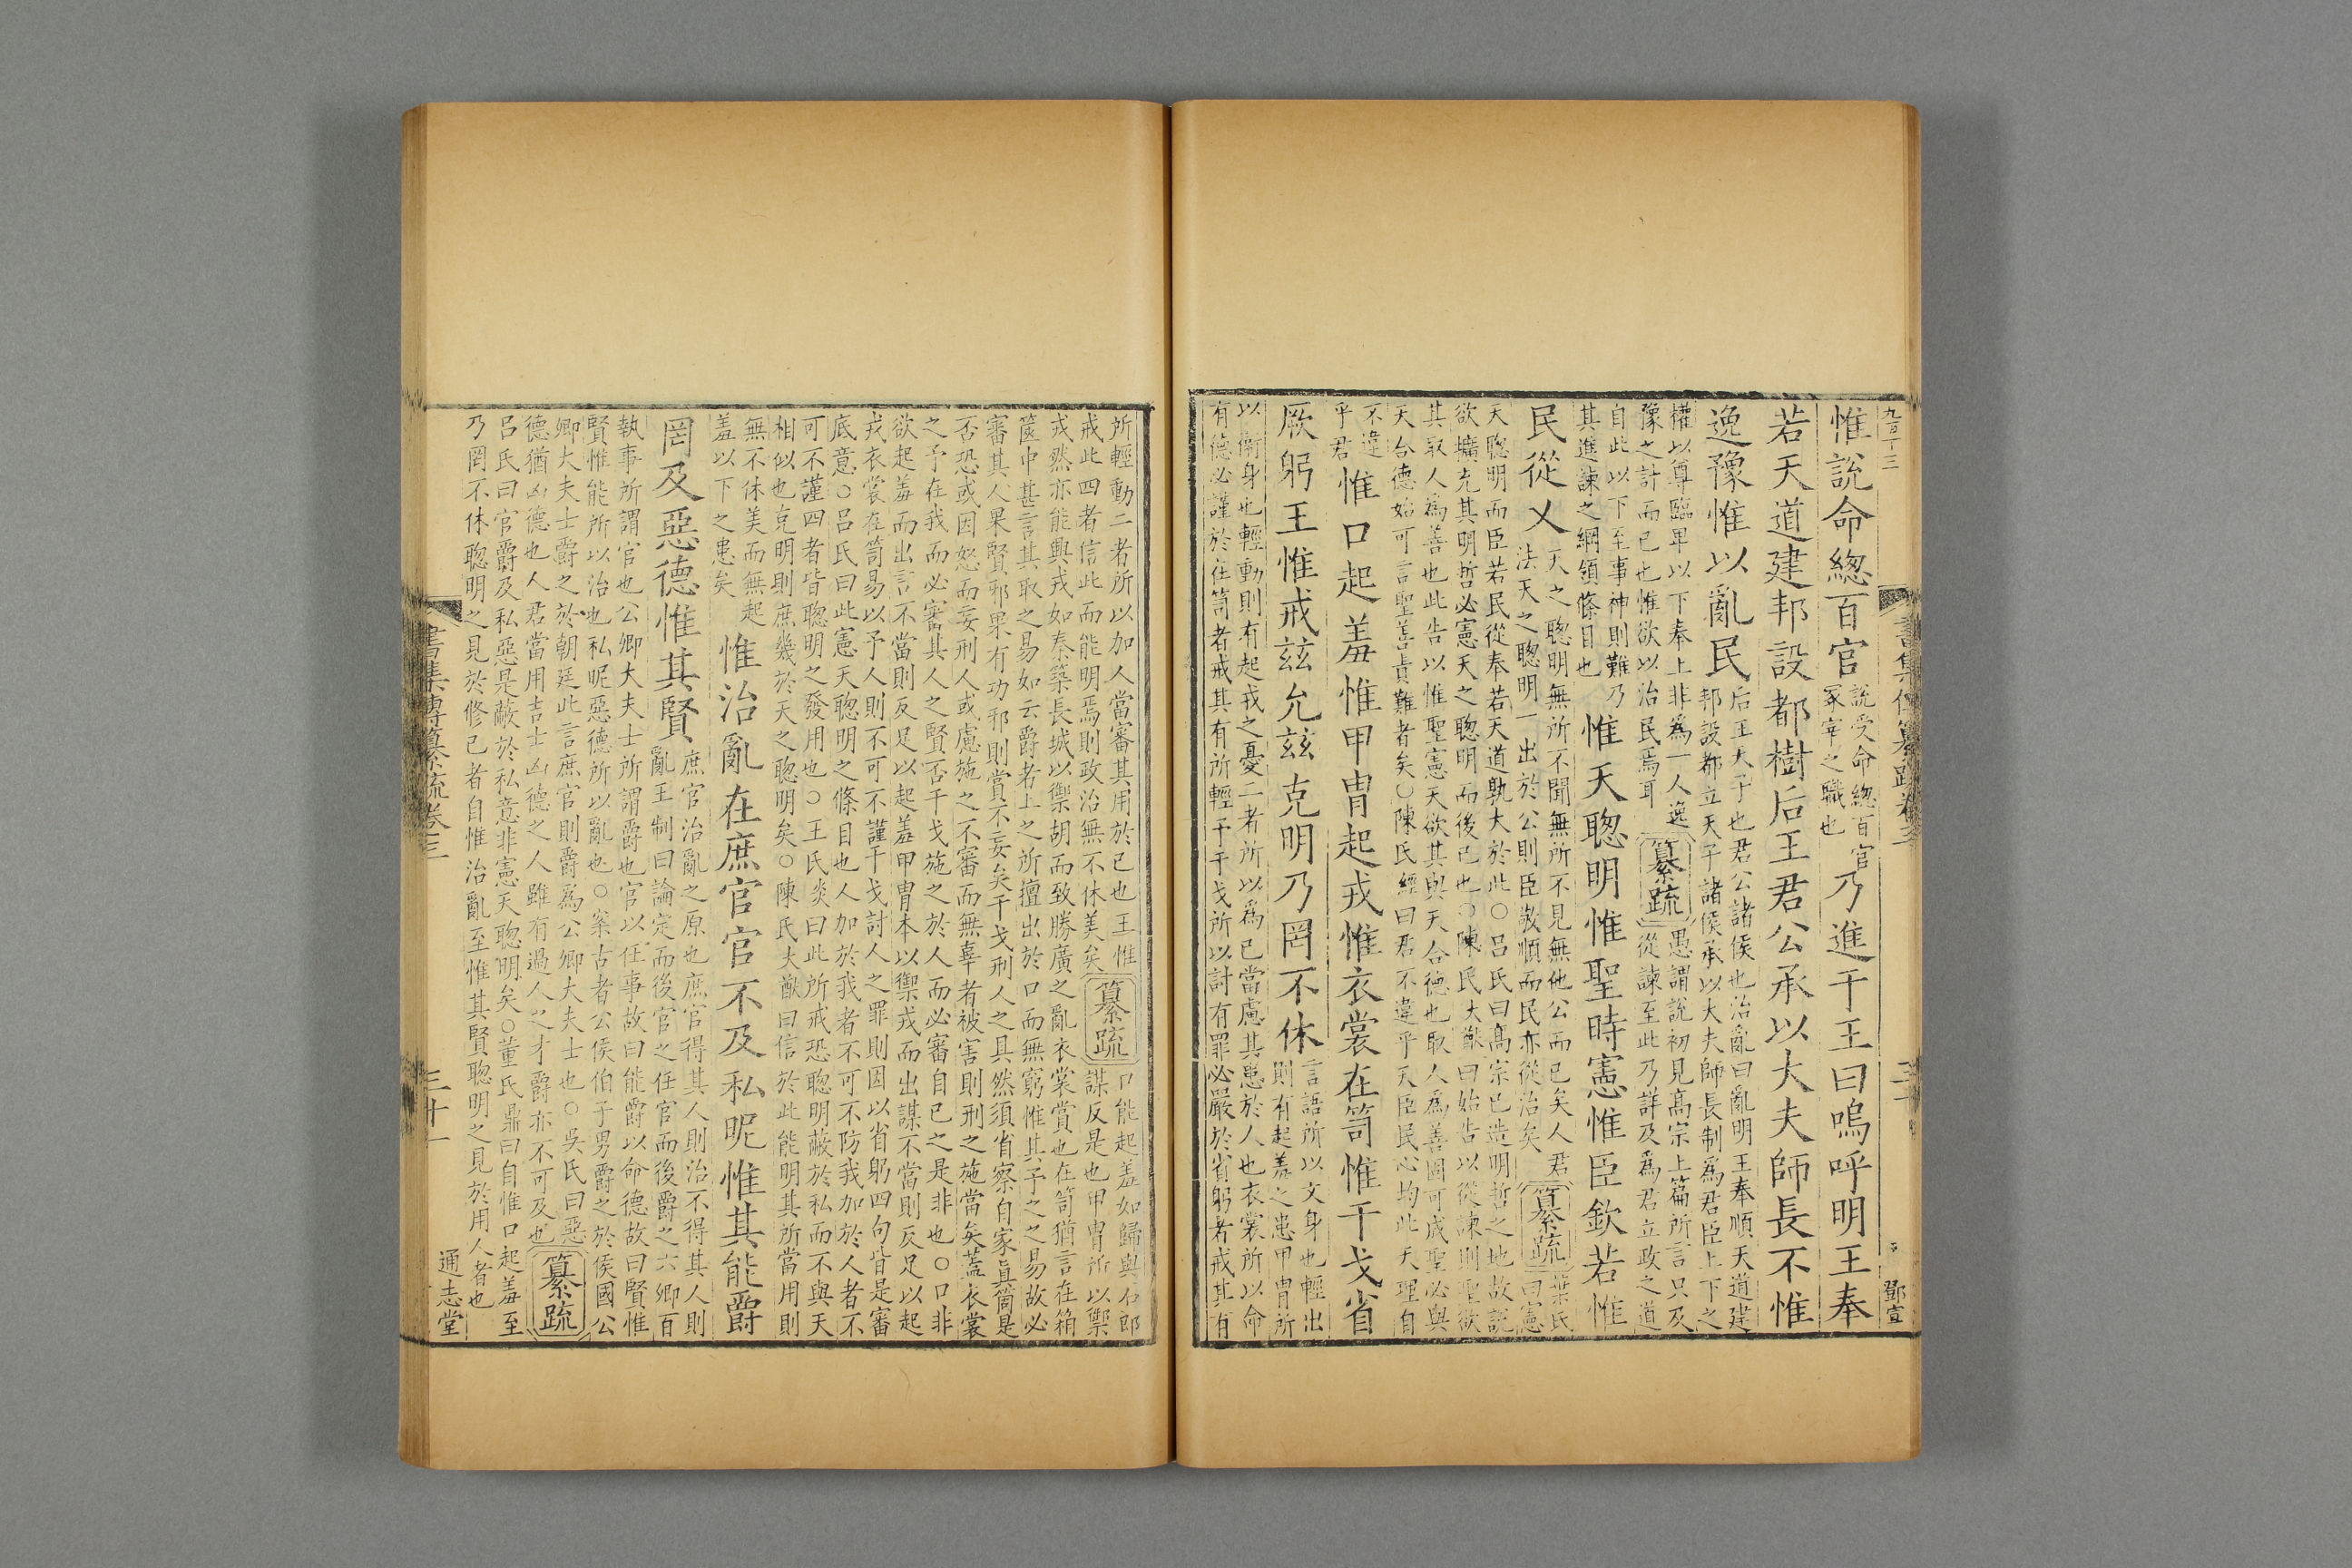 九百十二
鄧宣
書集傳纂疏卷三
惟說命總百官
說受命總百官
冢宰之職也
乃進于王曰嗚呼明王奉
若天道建邦設都樹后王君公承以大夫師長不惟
逸豫惟以亂民
后王天子也君公諸侯也治亂曰亂明王奉順天道建
邦設都立天子諸侯承以大夫師長制爲君臣上下之
權以尊臨卑以下奉上非爲一人逸
豫之計而已也惟欲以治民焉耳
纂疏
愚謂說初見高宗上篇所言只及
從諫至此乃詳及爲君立政之道
自此以下至事神則難乃
其進諫之綱領條目也
惟天聰明惟聖時憲惟臣欽若惟
民從乂
天之聰明無所不聞無所不見無他公而已矣人君
法天之聰明一出於公則臣敬順而民亦從治矣
纂疏
葉氏
曰憲
天聰明而臣若民從奉若天道孰大於此○呂氏曰高宗已造明哲之地故說
欲擴充其明哲必憲天之聰明而後已也○陳氏大猷曰始告以從諫則聖欲
其取人爲善也此告以惟聖憲天欲其與天合德也取人爲善固可成聖必與
天合德始可言聖善責難者矣○陳氏經曰君不違乎天臣民心均此天理自
不違
乎君
惟口起羞惟甲冑起戎惟衣裳在笥惟干戈省
厥躬王惟戒茲允茲克明乃罔不休
言語所以文身也輕出
則有起羞之患甲冑所
以衛身也輕動則有起戎之憂二者所以爲己當慮其患於人也衣裳所以命
有德必謹於在笥者戒其有所輕予干戈所以討有罪必嚴於省躬者戒其有
所輕動二者所以加人當審其用於已也王惟
戒此四者信此而能明焉則政治無不休美矣
纂疏
口能起羞如歸與石郎
謀反是也甲冑所以禦
戎然亦能興戎如秦築長城以禦胡而致勝廣之亂衣裳賞也在笥猶言在箱
篋中甚言其取之易如云爵者上之所擅出於口而無窮惟其予之之易故必
審其人果賢邪果有功邪則賞不妄矣干戈刑人之具然須省察自家眞箇是
否恐或因怒而妄刑人或慮施之不審而無辜者被害則刑之施當矣蓋衣裳
之予在我而必審其人之賢否干戈施之於人而必審自已之是非也○口非
欲起羞而出言不當則反足以起羞甲冑本以禦戎而出謀不當則反足以起
戎衣裳在笥易以予人則不可不謹干戈討人之罪則因以省躬四句皆是審
底意○呂氏曰此憲天聰明之條目也人加於我者不可不防我加於人者不
可不謹四者皆聰明之發用也○王氏炎曰此所戒恐聰明蔽於私而不與天
相似也克明則庶幾於天之聰明矣○陳氏大猷曰信於此能明其所當用則
無不休美而無起
羞以下之患矣
惟治亂在庶官官不及私昵惟其能爵
罔及惡德惟其賢
庶官治亂之原也庶官得其人則治不得其人則
亂王制曰論定而後官之任官而後爵之六卿百
執事所謂官也公卿大夫士所謂爵也官以任事故曰能爵以命德故曰賢惟
賢惟能所以治也私昵惡德所以亂也○案古者公侯伯子男爵之於侯國公
卿大夫士爵之於朝廷此言庶官則爵爲公卿大夫士也○吳氏曰惡
德猶凶德也人君當用吉士凶德之人雖有過人之才爵亦不可及也
纂疏
呂氏曰官爵及私惡是蔽於私意非憲天聰明矣○董氏鼎曰自惟口起羞至
乃罔不休聰明之見於修己者自惟治亂至惟其賢聰明之見於用人者也
書集傳纂疏卷三
三十一
通志堂